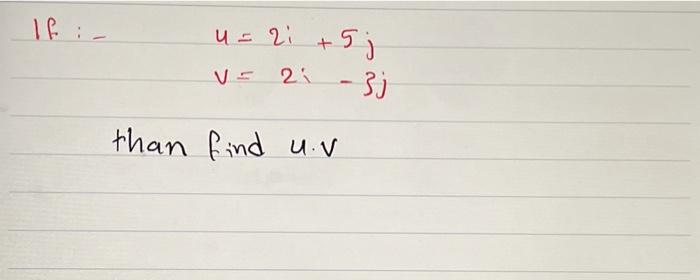 If :- u = 2i + 5j
v = 2i - 3j
than find u.v